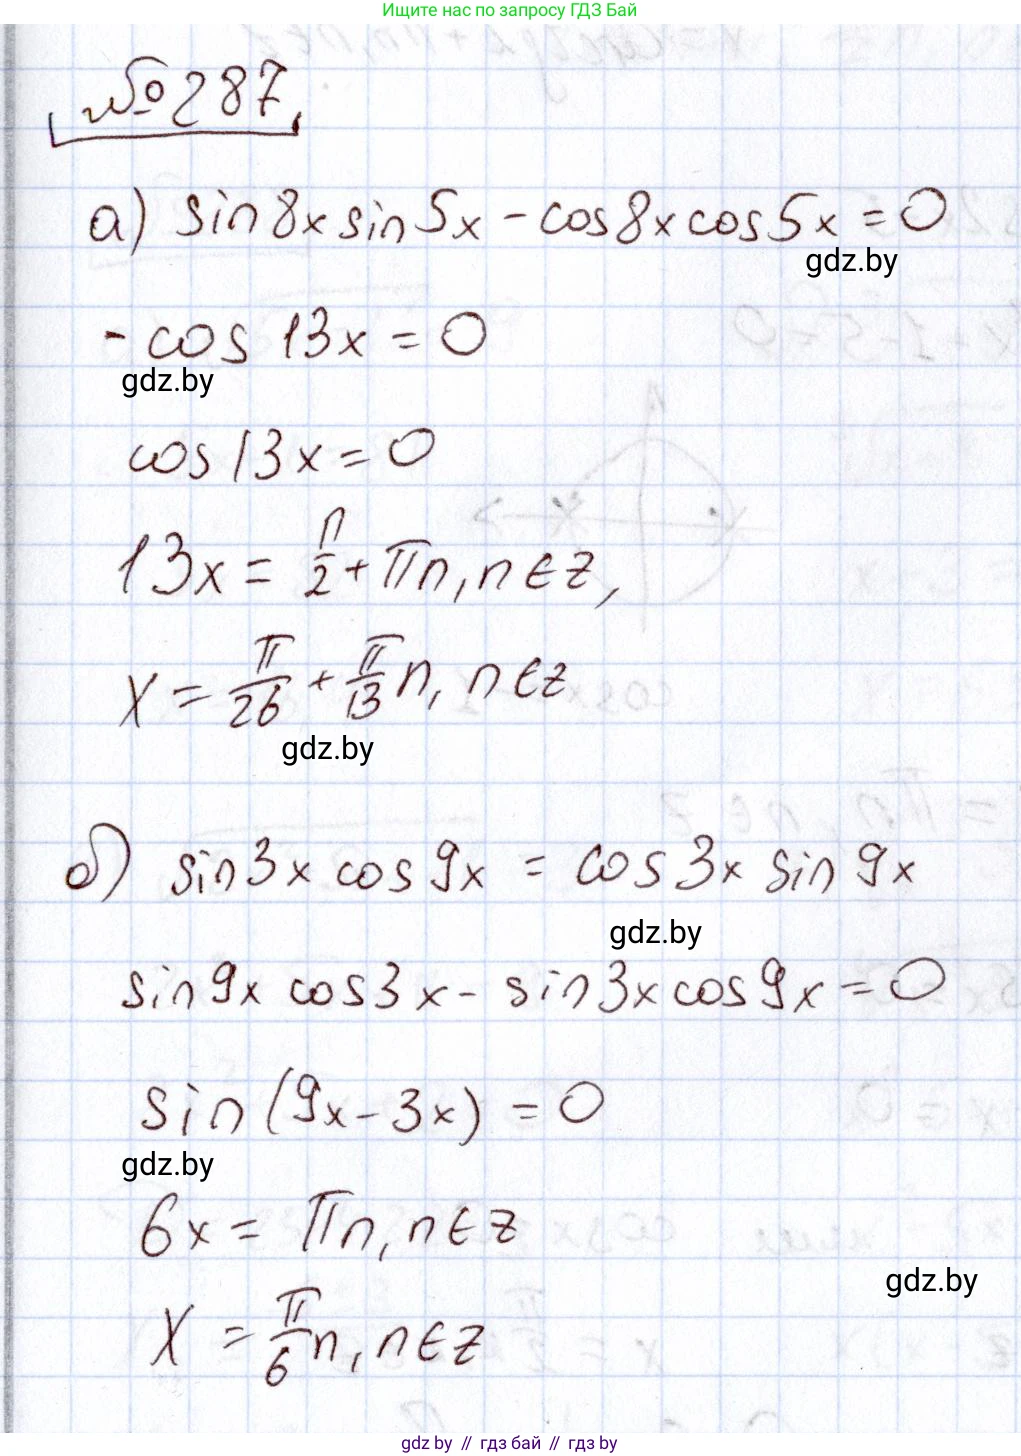 Ищите нас по запросу ГДЗ Бай
№287
а) sin8x sin5x - cos8x cos5x = 0
gdz.by
-cos 13x = 0
gdz.by
cos13x = 0
13x = π/2 + πn, n∈Z,
x = π/26 + π/13 n, n∈Z
gdz.by
б) sin3x cos9x = cos3x sin9x
gdz.by
sin9x cos3x - sin3x cos9x = 0
sin(9x-3x) = 0
gdz.by
6x = πn, n∈Z
gdz.by
x = π/6 n, n∈Z
gdz.by // гдз бай // gdz by